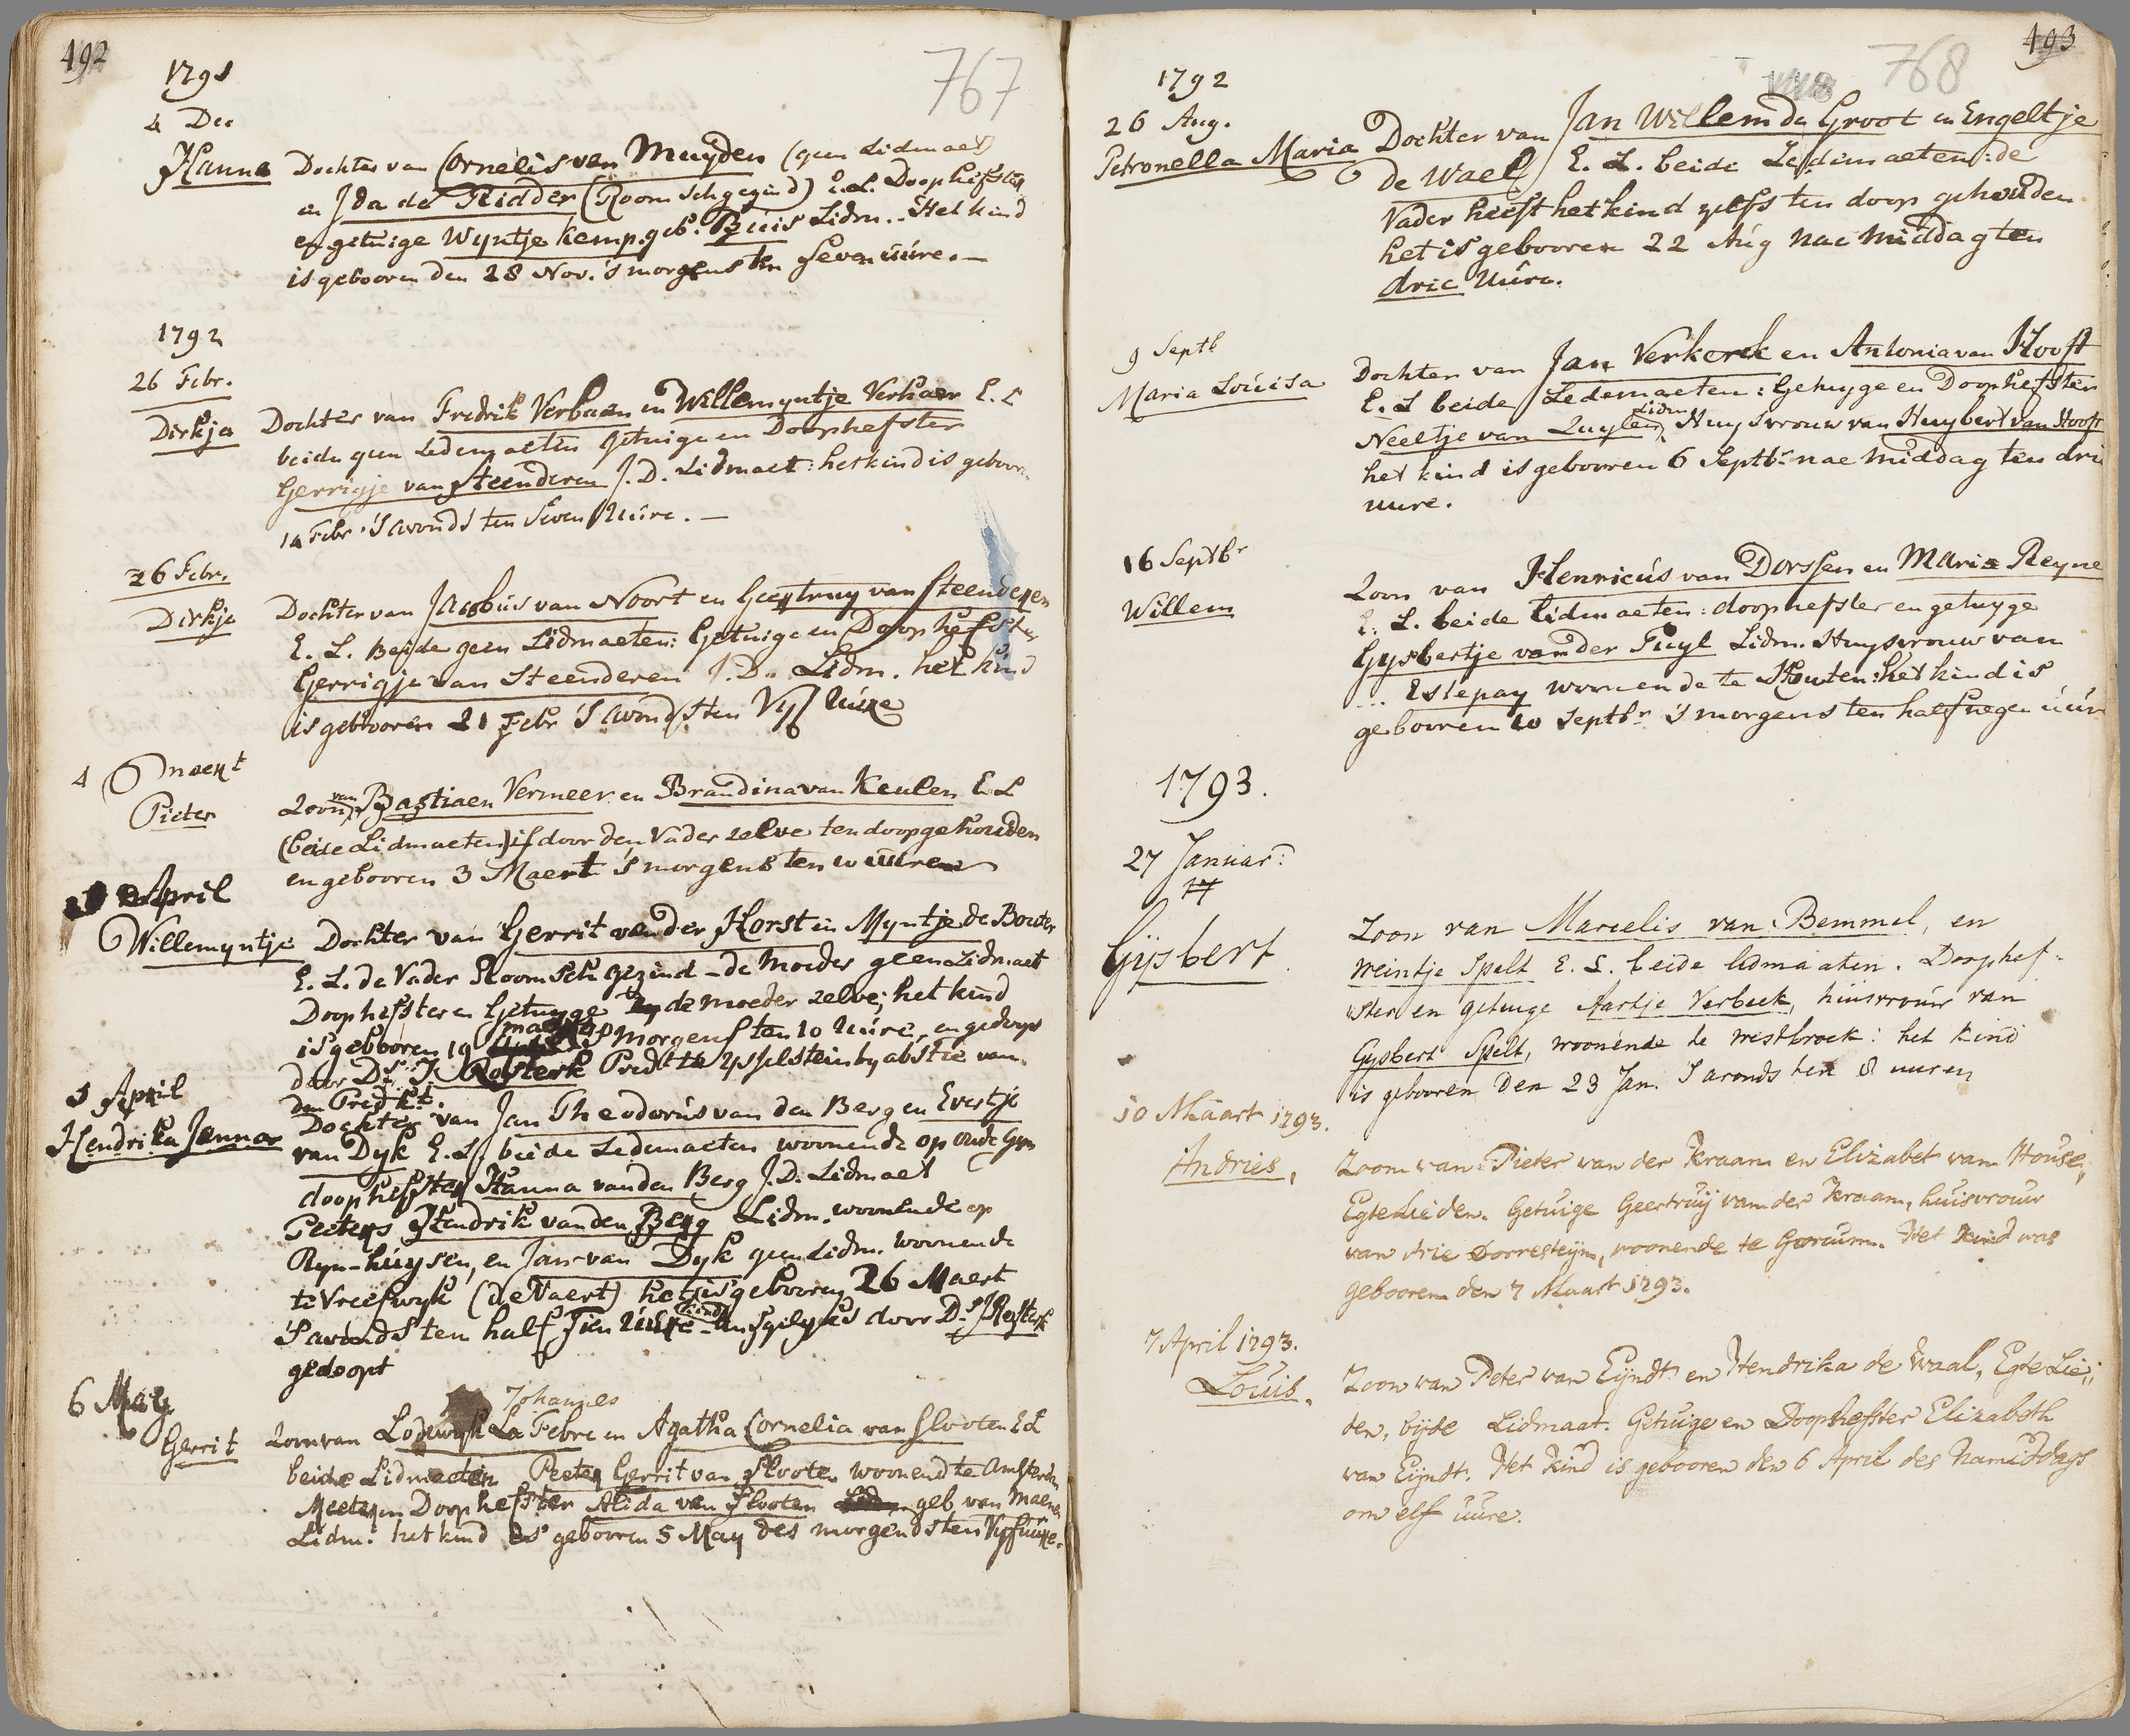 492
767
1791
4 Dec
Hanna Dochter van Cornelis van Muyden (geen Lidmaet)
en Ida de Ridder (Roomsch gezind) E.L. Doophefster
en getuige Wyntje Kemp. geb. Lidm. Het kind
is gebooren den 28 Nov. 's morgens ten seven uúre.—
1792
26 Febr.
Dirkja Dochter van Fredrik Verbaen en Willemyntje Verhaer E. L
beide geen Ledemaeten Getuige en Doophefster
Gerrigje van Steenderen J.D. Lidmaet: het kind is gebooren
14 Febr 's avonds ten seven Uúre.—
26 Febr.
Dirkje Dochter van Jacobús van Noort en Geertruy van Steenderen
E. L. Beide geen Lidmaeten: Getuige en Doophefster
Gerrigje van Steenderen J.D. Lidm. het kind
is gebooren 21 Febr 's avonds ten Vyf Uúre
4 Maert
Pieter Zoon van Bastiaen Vermeer en Brandina van Keulen E.L
(beide Lidmaeten) is door den Vader zelve ten doop gehouden
en gebooren 3 Maert 's morgens ten 10 uúren
April
Willemyntje Dochter van Gerrit van der Horst en Myntje de
E. L. de Vader Roomsch gezind – de Moeder geen Lidmaet
Doophefster en Getuyge de moeder zelve; het kind
is gebooren 19 maert 's morgens ten 10 Uúre, en gedoopt
door Ds. J. Rosterk Predt. te Ysselstein by abstie van
den Predkt.
5 April
Hendrika Janna Dochter van Jan Theodorús van den Berg en Evertje
van Dyk E. L. beide Ledemaeten woonende op Oude Gyn
doophefster Hanna van den Berg J.D. Lidmaet
Peeters Hendrik van den Berg Lidm. woonende op
Ryn-húysen, en Jan van Dyk geen Lidm. woonende
te Vreeswyk (de Vaert) het is gebooren 26 Maert
's avonds ten half Tien Uúre insgelyks door Ds. J Rosterk
gedoopt
6 May
Johannes
Gerrit Zoon van Lodewyk La Febre en Agatha Cornelia van Slooten E L
beide Lidmaeten Peeter Gerrit van Slooten woonend te Amsterdm
Meeter en Doophefster Alida van Slooten geb van
Lidm: het kind is gebooren 5 May des morgens ten Vyf uúre.
493
768
1792
26 Aug.
Petronella Maria Dochter van Jan Willem de Groot en Engeltje
de Wael E. L. beide Ledemaeten: de
Vader heeft het kind zelfs ten doop gehouden
het is gebooren 22 Aúg nae middag ten
drie Uúre.
9 Septb
Maria Loúisa Dochter van Jan Verkerk en Antonia van Hooft
E. L beide Ledemaeten: Getuyge en Doophefster
Neeltje van Zuylen Lidm Huysvrouw van Huybert van Hooft
het kind is gebooren 6 Septbr. nae middag ten dri
uure.
16 Septbr
Willem Zoon van Henricús van Dorssen en Maria Reyne
E. L. beide Lidmaeten: doophefster en getuyge
Gysbertje van der Tuyl Lidm. Huysvrouw van
... Eslepay woonende te Houten: het kind is
gebooren 10 Septbr 's morgens ten half negen uúr
1793.
27 Januar:
17
Gijsbert Zoon van Marcelis van Bemmel, en
Meintje Spelt E. L. beide lidmaaten. Doophef-
ster en getuige Aartje Verbeek, húisvrouw van
Gysbert Spelt, woonende te westbroek: het kind
is gebooren den 23 Jan. 's avonds ten 8 uuren
10 Maart 1793.
Andries, Zoon van Pieter van der Kraam en Elizabet van House,
Egte Lieden. Getúige Geertruij van der Kraam, huisvrouw
van Arie Dorresteijn, woonende te Gorcum. Het kind was
gebooren den 7 Maart 1793.
7 April 1793.
Louis. Zoon van Peter van Eijndt en Hendrika de Waal, Egte Lie-
den, bijde Lidmaat. Getuige en Doophefster Elizabeth
van Eijndt. Het kind is gebooren den 6 April des namiddags
om elf uúre.